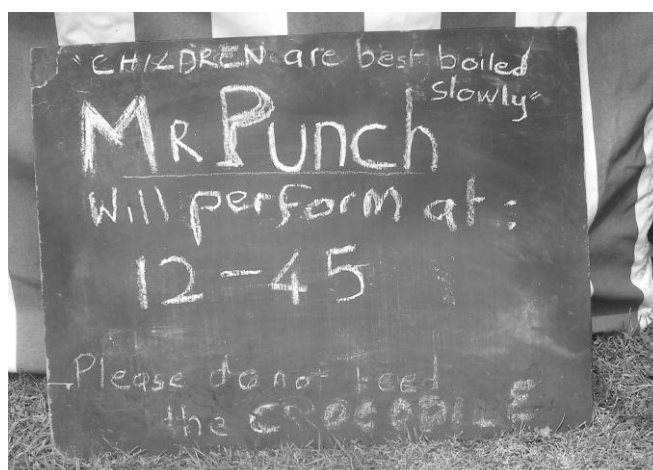 "CHILDREN are best boiled
slowly"
MR PUNCH
Will perform at:
12-45
Please do not feed
the CROCODILE